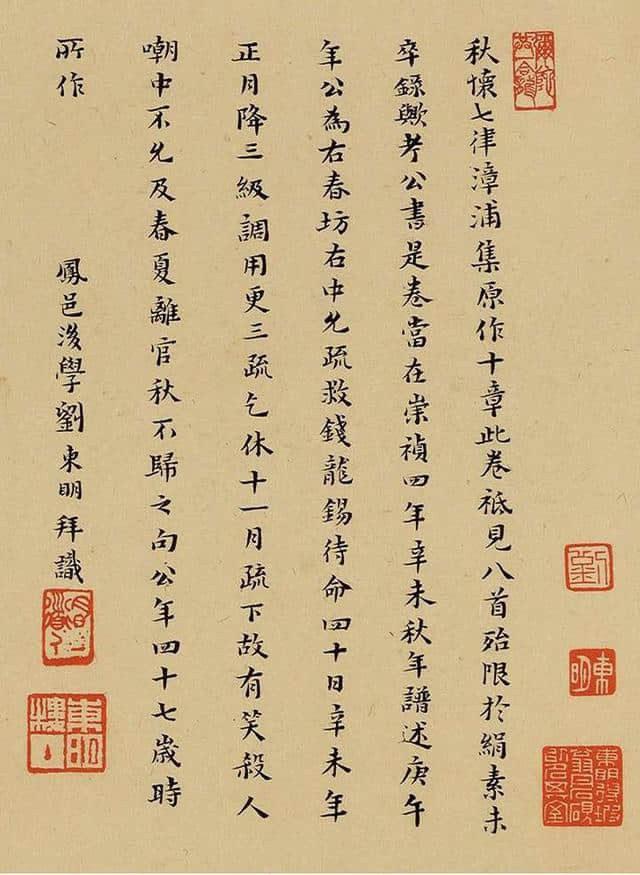 秋懷七律漳浦集原作十章此卷祗見八首殆限於絹素未
卒錄歟考公書是卷當在崇禎四年辛未秋年譜述庚午
年公為右春坊右中允疏救錢龍錫待命四十日辛未年
正月降三級調用更三疏乞休十一月疏下故有笑殺人
嘲中不允及春夏離官秋不歸之句公年四十七歲時
所作 鳳邑後學劉東明拜識
劉
東明